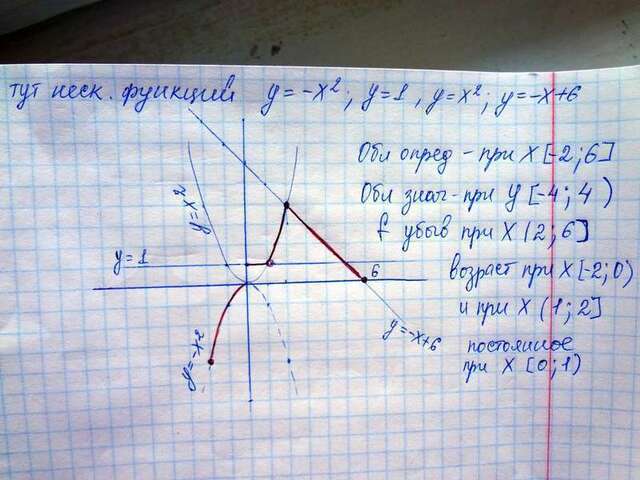 тут неск. функций y = -x²; y = 1, y = x²; y = -x+6
Обл опред - при X [-2; 6]
Обл знач - при y [-4; 4)
f убыв при X (2; 6]
возраст при X [-2; 0)
и при X (1; 2]
постоянное
при X [0; 1)
y = x²
y = 1
6
y = -x+6
y = -x²